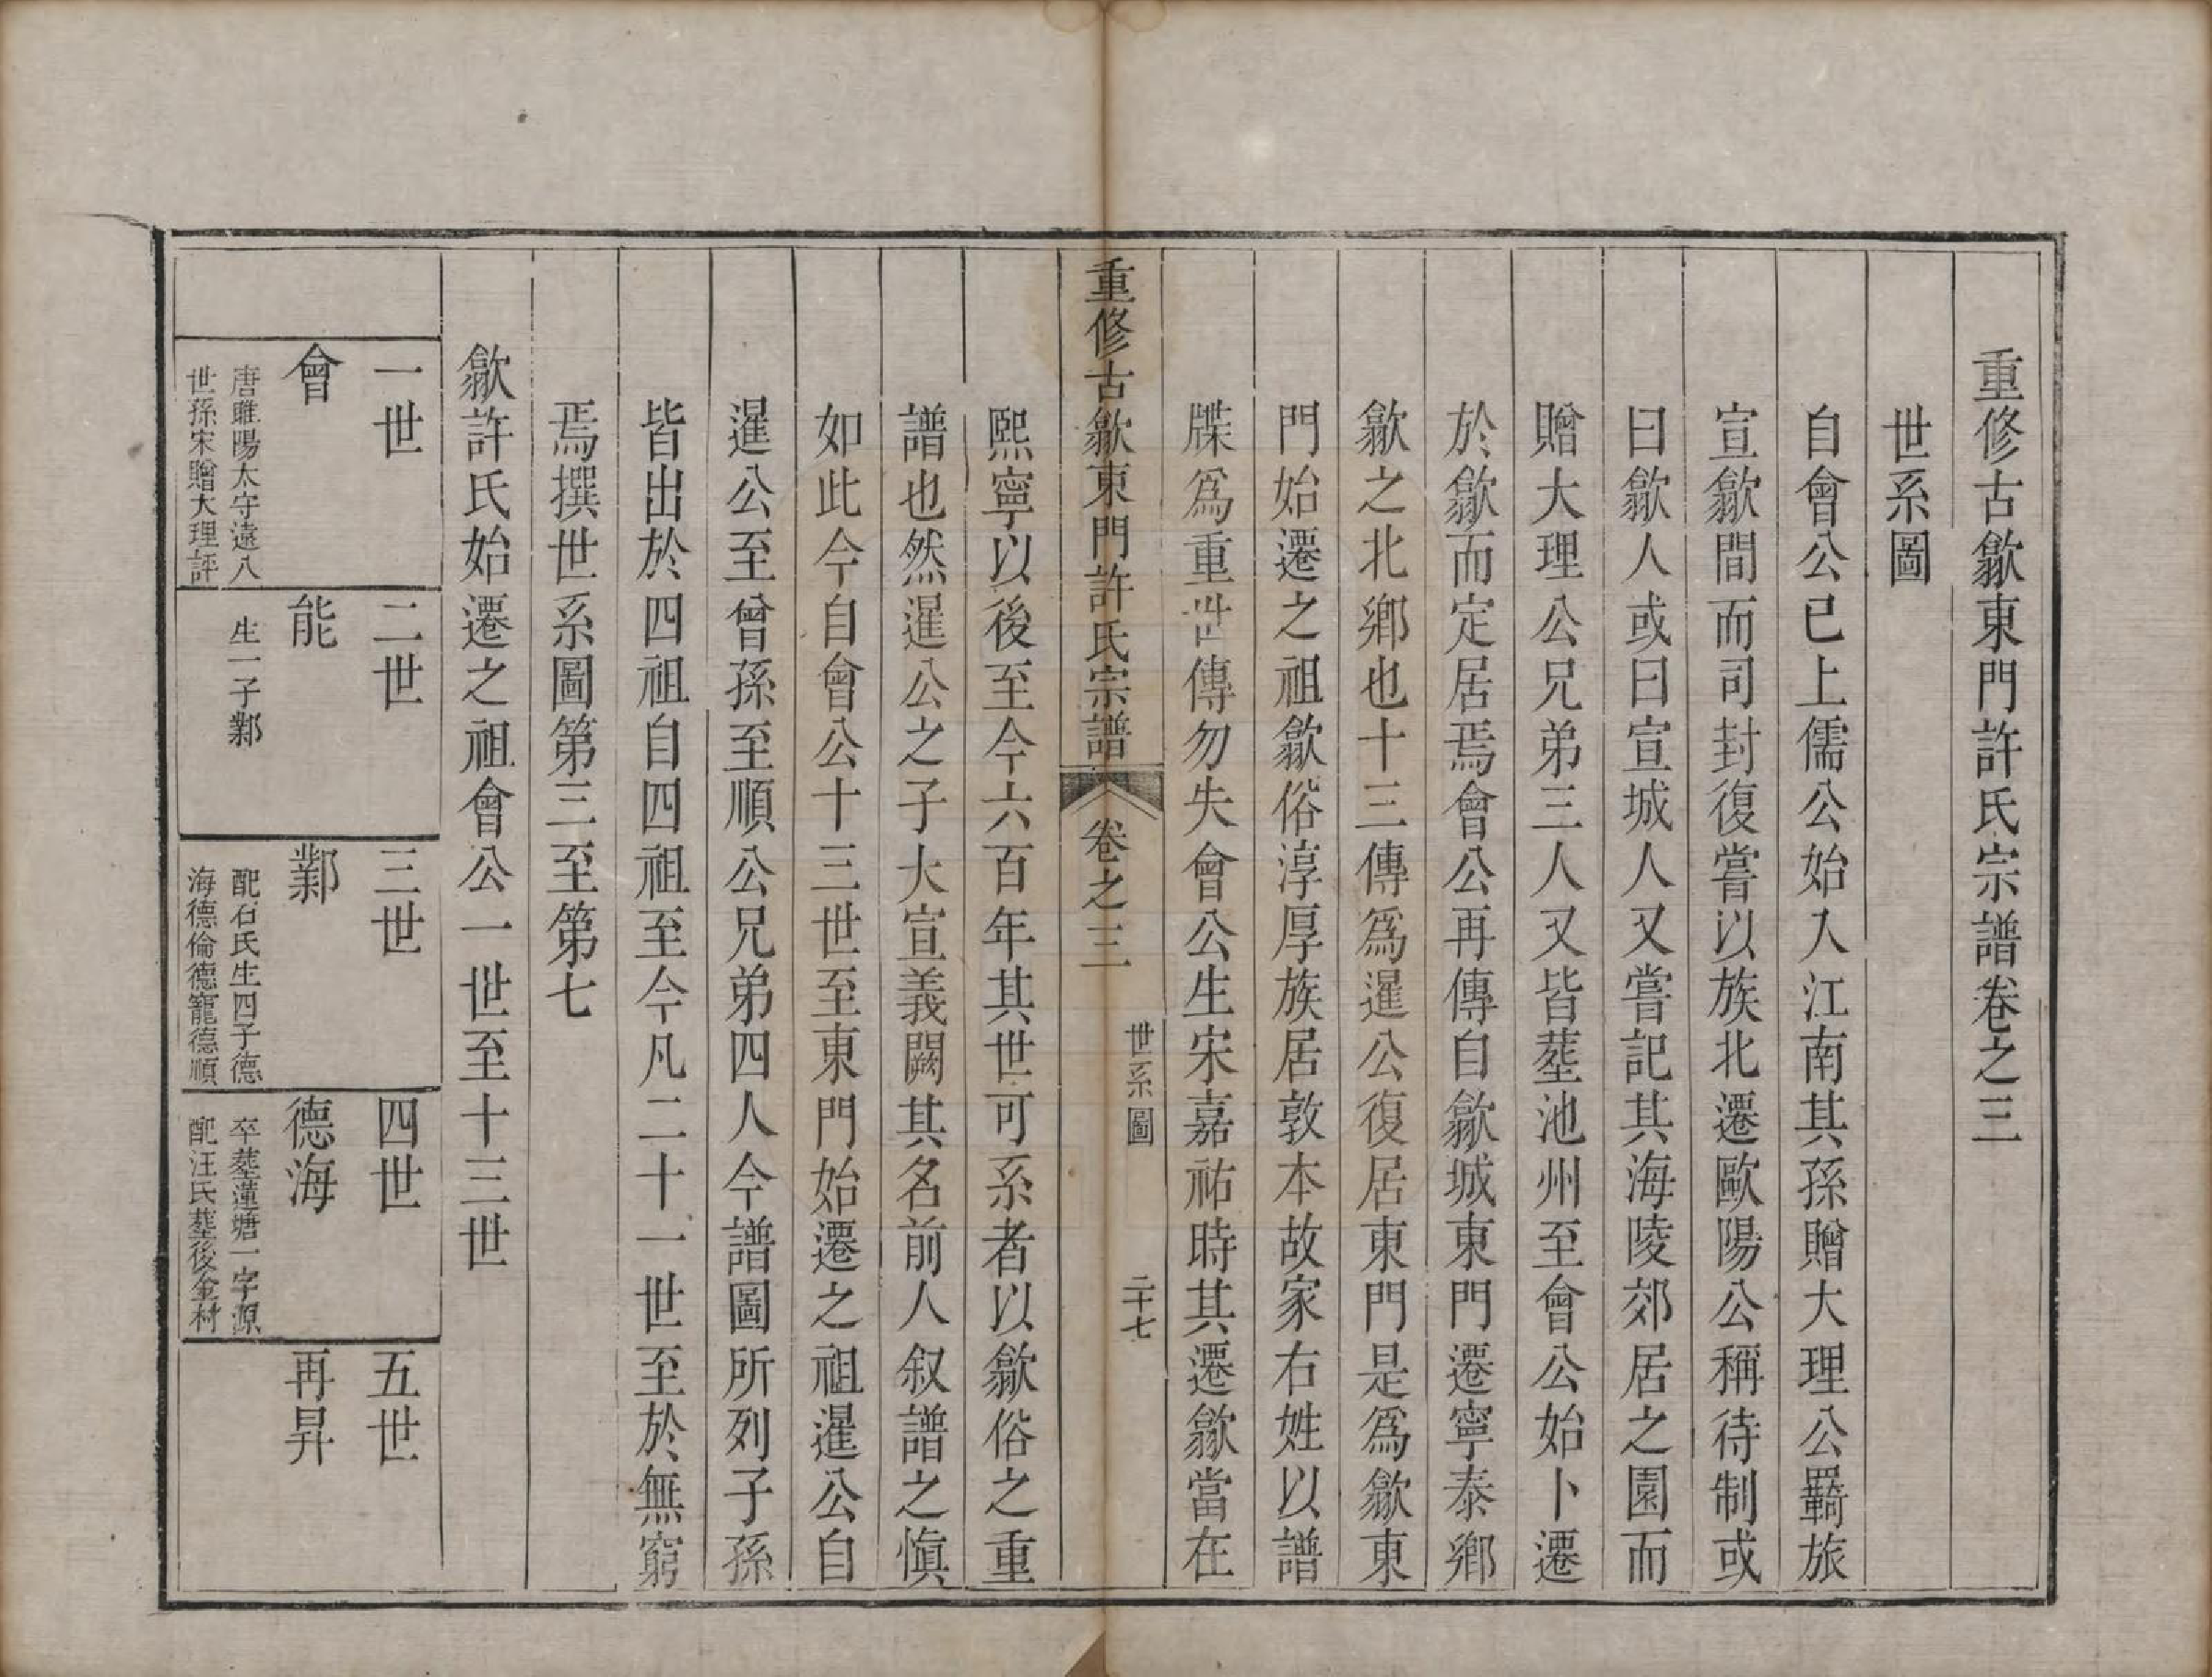 重修古歙東門許氏宗譜卷之三
世系圖
自會公已上儒公始入江南其孫贈大理公羇旅
宣歙間而司封復嘗以族北遷歐陽公稱待制或
曰歙人或曰宣城人又嘗記其海陵郊居之園而
贈大理公兄弟三人又皆塟池州至會公始卜遷
於歙而定居焉會公再傳自歙城東門遷寧泰鄉
歙之北鄉也十三傳爲暹公復居東門是爲歙東
門始遷之祖歙俗淳厚族居敦本故家右姓以譜
牒爲重世傳勿失會公生宋嘉祐時其遷歙當在
重修古歙東門許氏宗譜
卷之三
世系圖
二十七
熙寧以後至今六百年其世可系者以歙俗之重
譜也然暹公之子大宣義闕其名前人叙譜之愼
如此今自會公十三世至東門始遷之祖暹公自
暹公至曾孫至順公兄弟四人今譜圖所列子孫
皆出於四祖自四祖至今凡二十一世至於無窮
焉撰世系圖第三至第七
歙許氏始遷之祖會公一世至十三世
一世
會
唐睢陽太守遠八
世孫宋贈大理評
二世
能
生一子鄴
三世
鄴
配石氏生四子德
海德倫德寵德順
四世
德海
卒塟蓮塘一字源
配汪氏塟後金村
五世
再昇